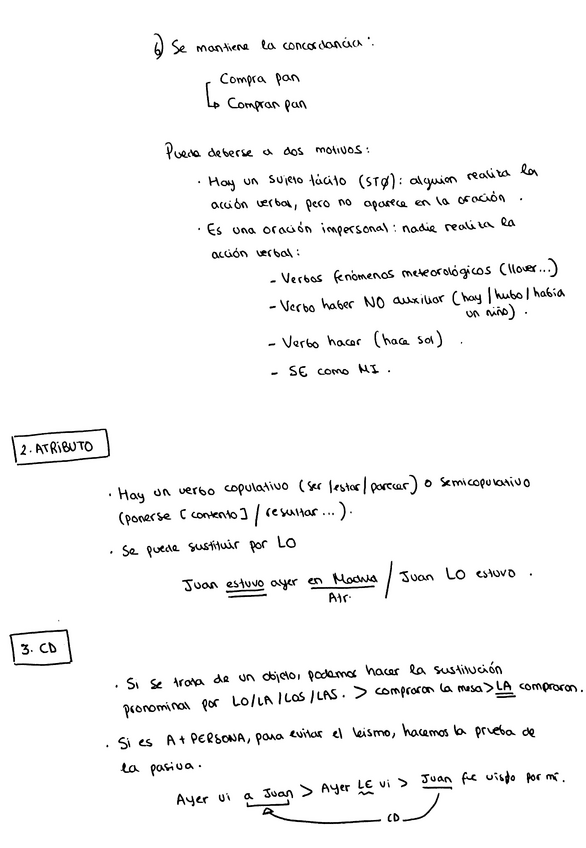 b) Se mantiene la concordancia:
Compra pan
↳ Compran pan
Puede deberse a dos motivos:
· Hay un sujeto tácito (STØ): alguien realiza la
acción verbal, pero no aparece en la oración.
· Es una oración impersonal: nadie realiza la
acción verbal:
- Verbos fenómenos meteorológicos (llover...)
- Verbo haber NO auxiliar (hay / hubo / había
un niño).
- Verbo hacer (hace sol).
- SE como MI.
2. ATRIBUTO
· Hay un verbo copulativo (ser / estar / parecer) o semicopulativo
(ponerse [contento] / resultar...).
· Se puede sustituir por LO
Juan estuvo ayer en Madrid / Juan LO estuvo.
Atr.
3. CD
· Si se trata de un objeto, podemos hacer la sustitución
pronominal por LO/LA/LOS/LAS. > compraron la mesa > LA compraron.
· Si es A + PERSONA, para evitar el leísmo, hacemos la prueba de
la pasiva.
Ayer vi a Juan > Ayer LE vi > Juan fue visto por mí.
CD